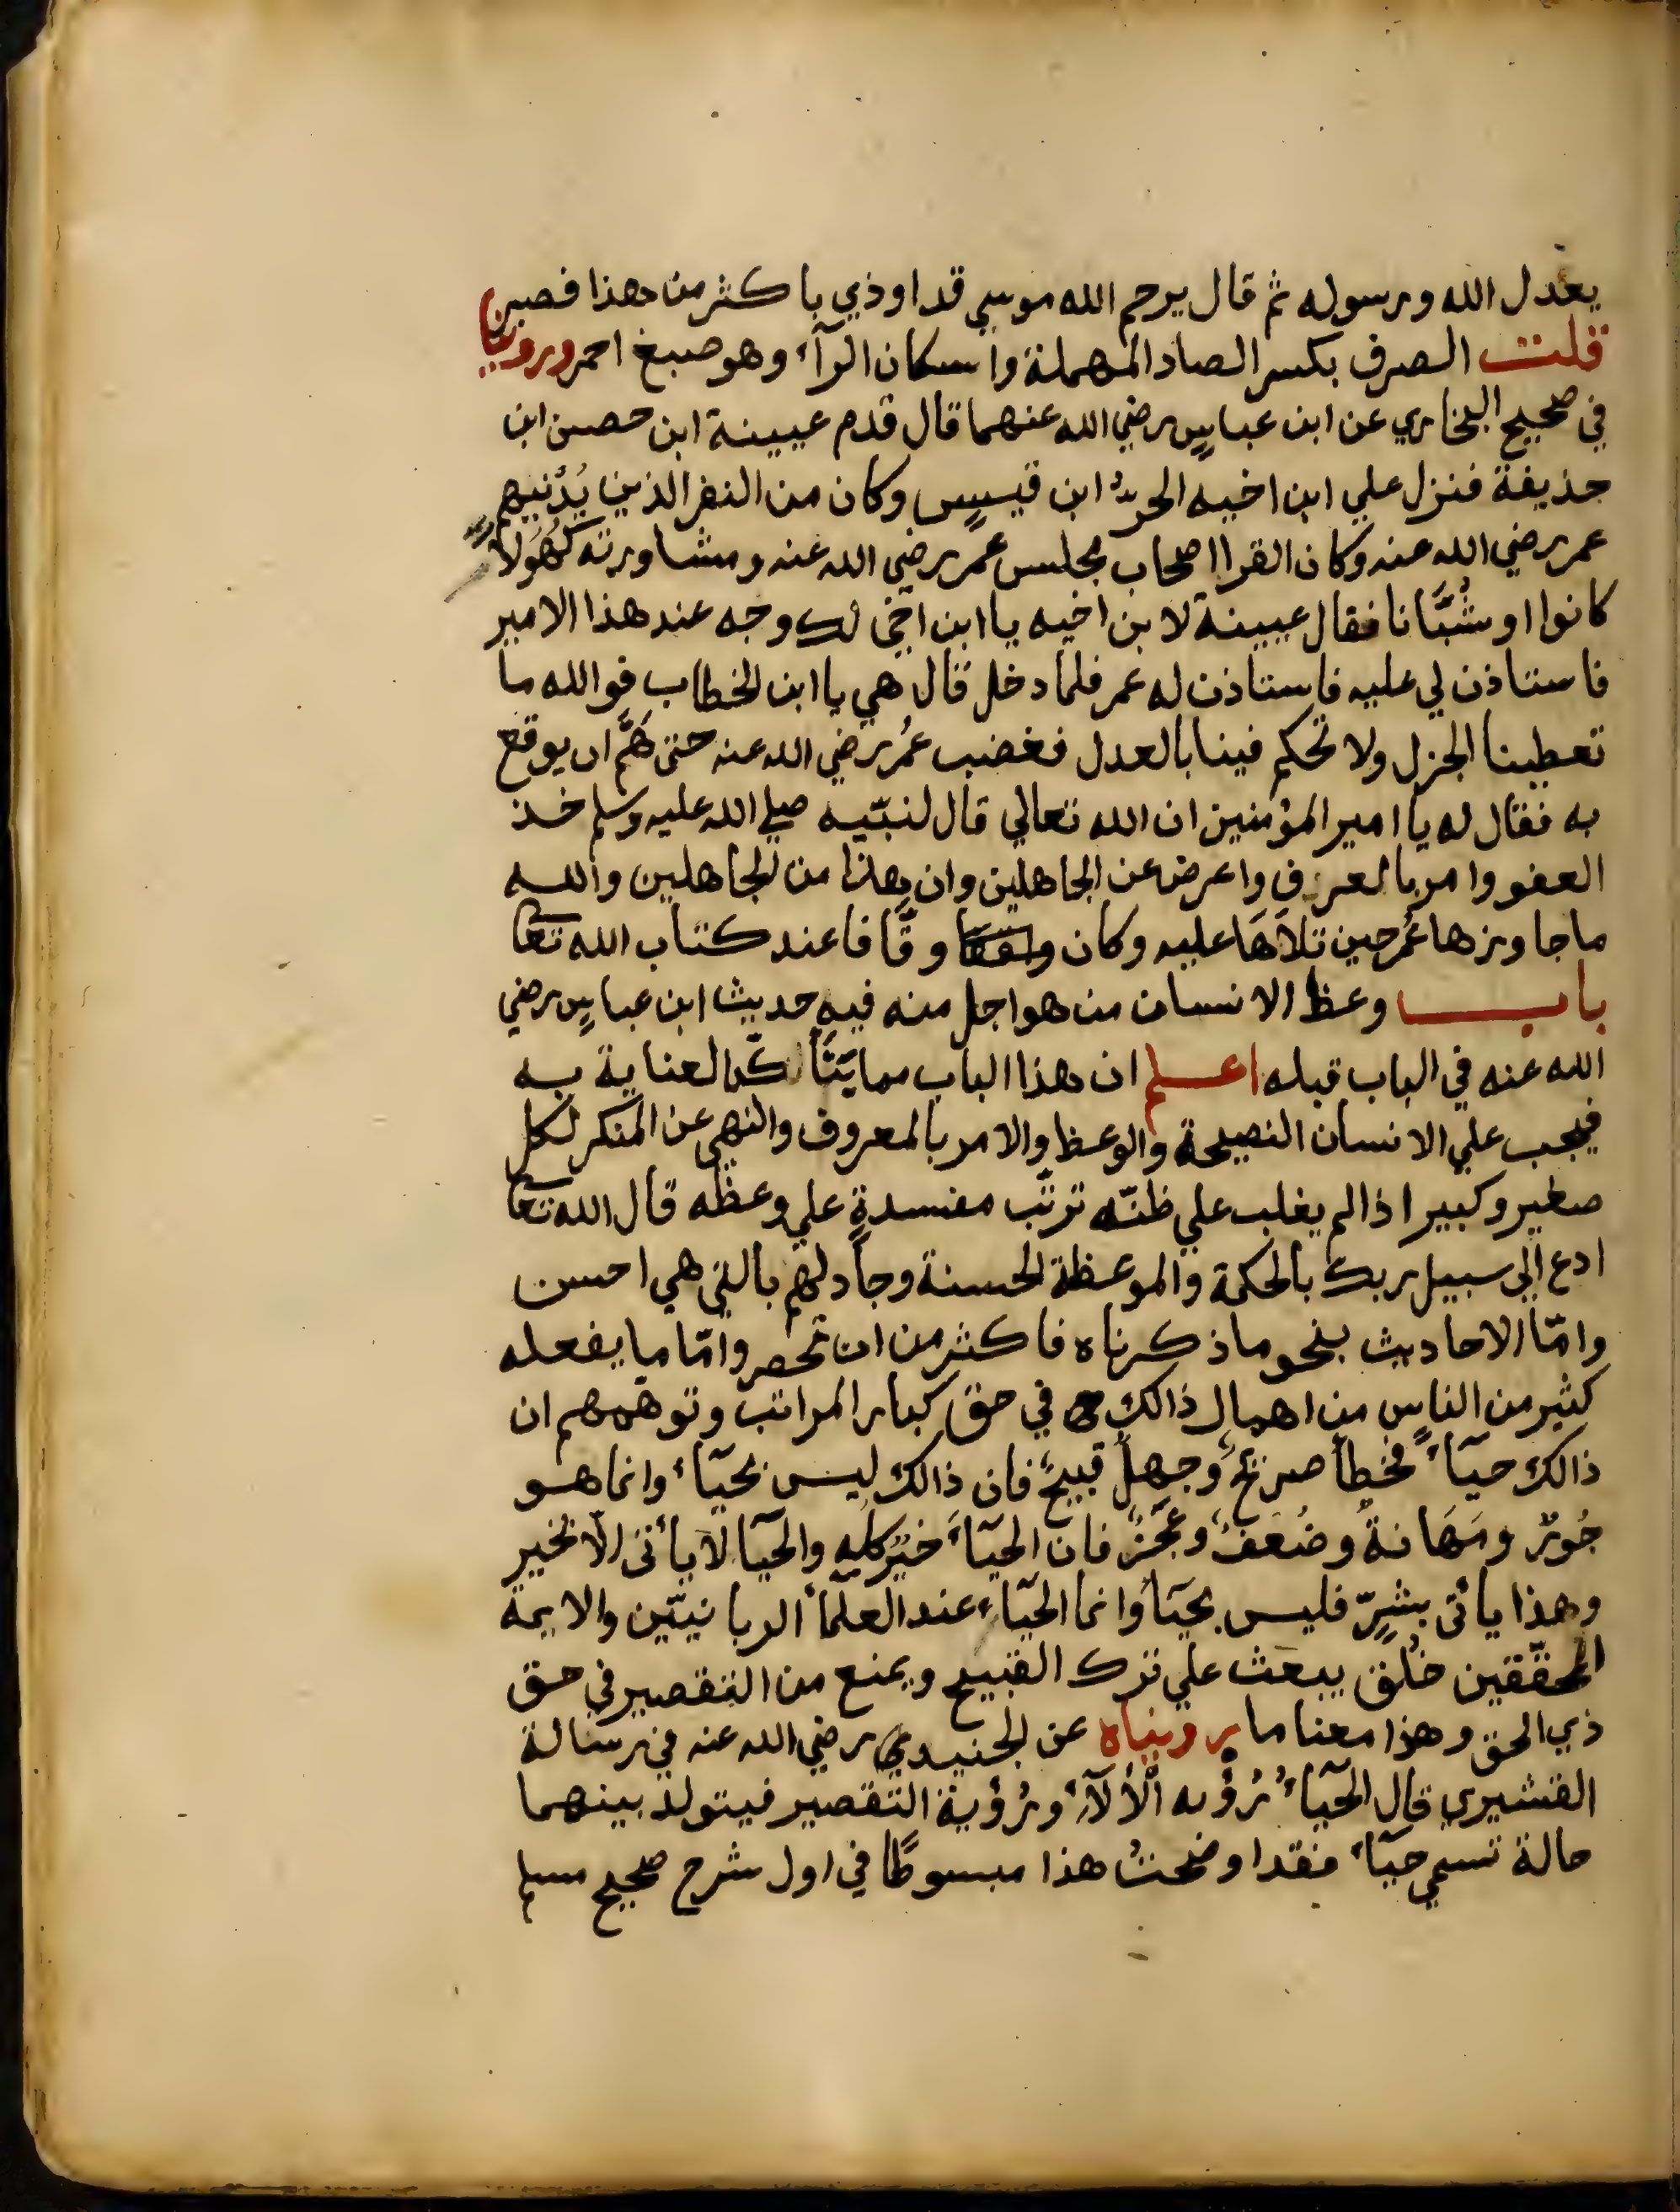 يعدل الله ورسوله ثم قال يرحم الله موسي قد اوذي باكثر من هذا فصبر
قلت الصرف بكسر الصاد المهملة واسكان الرآء وهو صبغ احمر وروينا
في صحيح البخاري عن ابن عباسٍ رضي الله عنهما قال قدم عيينة ابن حصن ابن
حذيفة فنزل علي ابن اخيه الحرّ ابن قيسٍ وكان من النفر الذين يُدْنيهم
عمر رضي الله عنه وكان القرا اصحاب مجلس عمر رضي الله عنه ومشاورته كُهُولاً
كانوا او شُبَّانا فقال عيينة لابن اخيه يا ابن اخي لك وجه عند هذا الامير
فاستاذن لي عليه فاستاذن له عمر فلما دخل قال هي يا ابن الخطاب فوالله ما
تعطينا الجزل ولا تحكم فينا بالعدل فغضب عمُر رضي الله عنه حتى هَمَّ ان يوقع
به فقال له يا امير المؤمنين ان الله تعالي قال لنبّيه صلي الله عليه وسلم خذ
العفو وامر بالعرف واعرض عن الجاهلين وان هذا من الجاهلين والله
ما جاوزها عُمر حين تلاَهَا عليه وكان وقَّافا عند كتاب الله تعا
باب وعظ الانسان من هو اجل منه فيه حديث ابن عباسٍ رضي
الله عنه في الباب قبله اعلم ان هذا الباب مما يَتَأكّد العناية به
فيجب علي الانسان النصيحة والوعظ والامر بالمعروف والنهي عن المنكر لكل
صغير وكبير اذا لم يغلب علي ظنّه ترتّب مفسدةٍ علي وعظه قال الله تعا
ادع الي سبيل ربك بالحكمة والموعظة الحسنة وجادلهم بالتي هي احسن
وامّا الاحاديث بنحو ما ذكرناه فاكثر من ان تحصر وامّا ما يفعله
كثير من الناسٍ من اهمال ذالك في حق كبار المراتب وتوهمهم ان
ذالك حيآءً فخطأ صريحٌ وجهلٌ قبيحٌ فان ذالك ليس بحيآء وانما هو
خُورٌ ومَهَانةٌ وضُعفٌ وعَجَزٌ فان الحيآءَ خيْر كله والحيآ لا يأتى الاّ بخير
وهذا يأتى بشرٍّ فليس بحيَآ وانما الحيآء عند العلمآ الربانيّين والايمة
المحقّقين خُلق يبعث علي ترك القبيح ويمنع من التقصير في حق
ذي الحق وهذا معنا ما رويناه عن الجنيدي رضي الله عنه في رسالة
القشيري قال الحيآءُ رُؤْيه الْألآءِ ورُؤية التقصير فيتولد بينهما
حالة تسمي حيآء فقد اوضحتُ هذا مبسوطًا في اول شرح صحيح مسلم